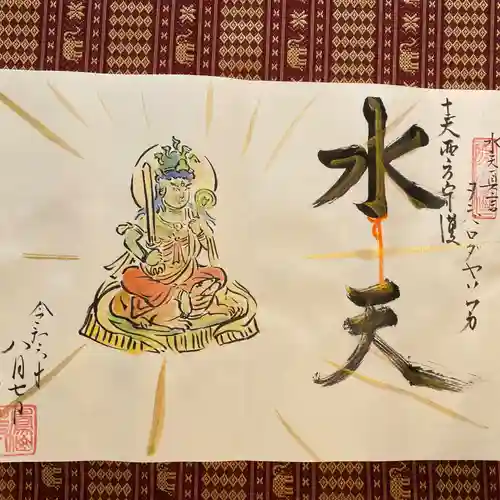 水天真言
ヲン バロダヤ ソワカ
十二天 西方守護
水天
令和六年
八月七日